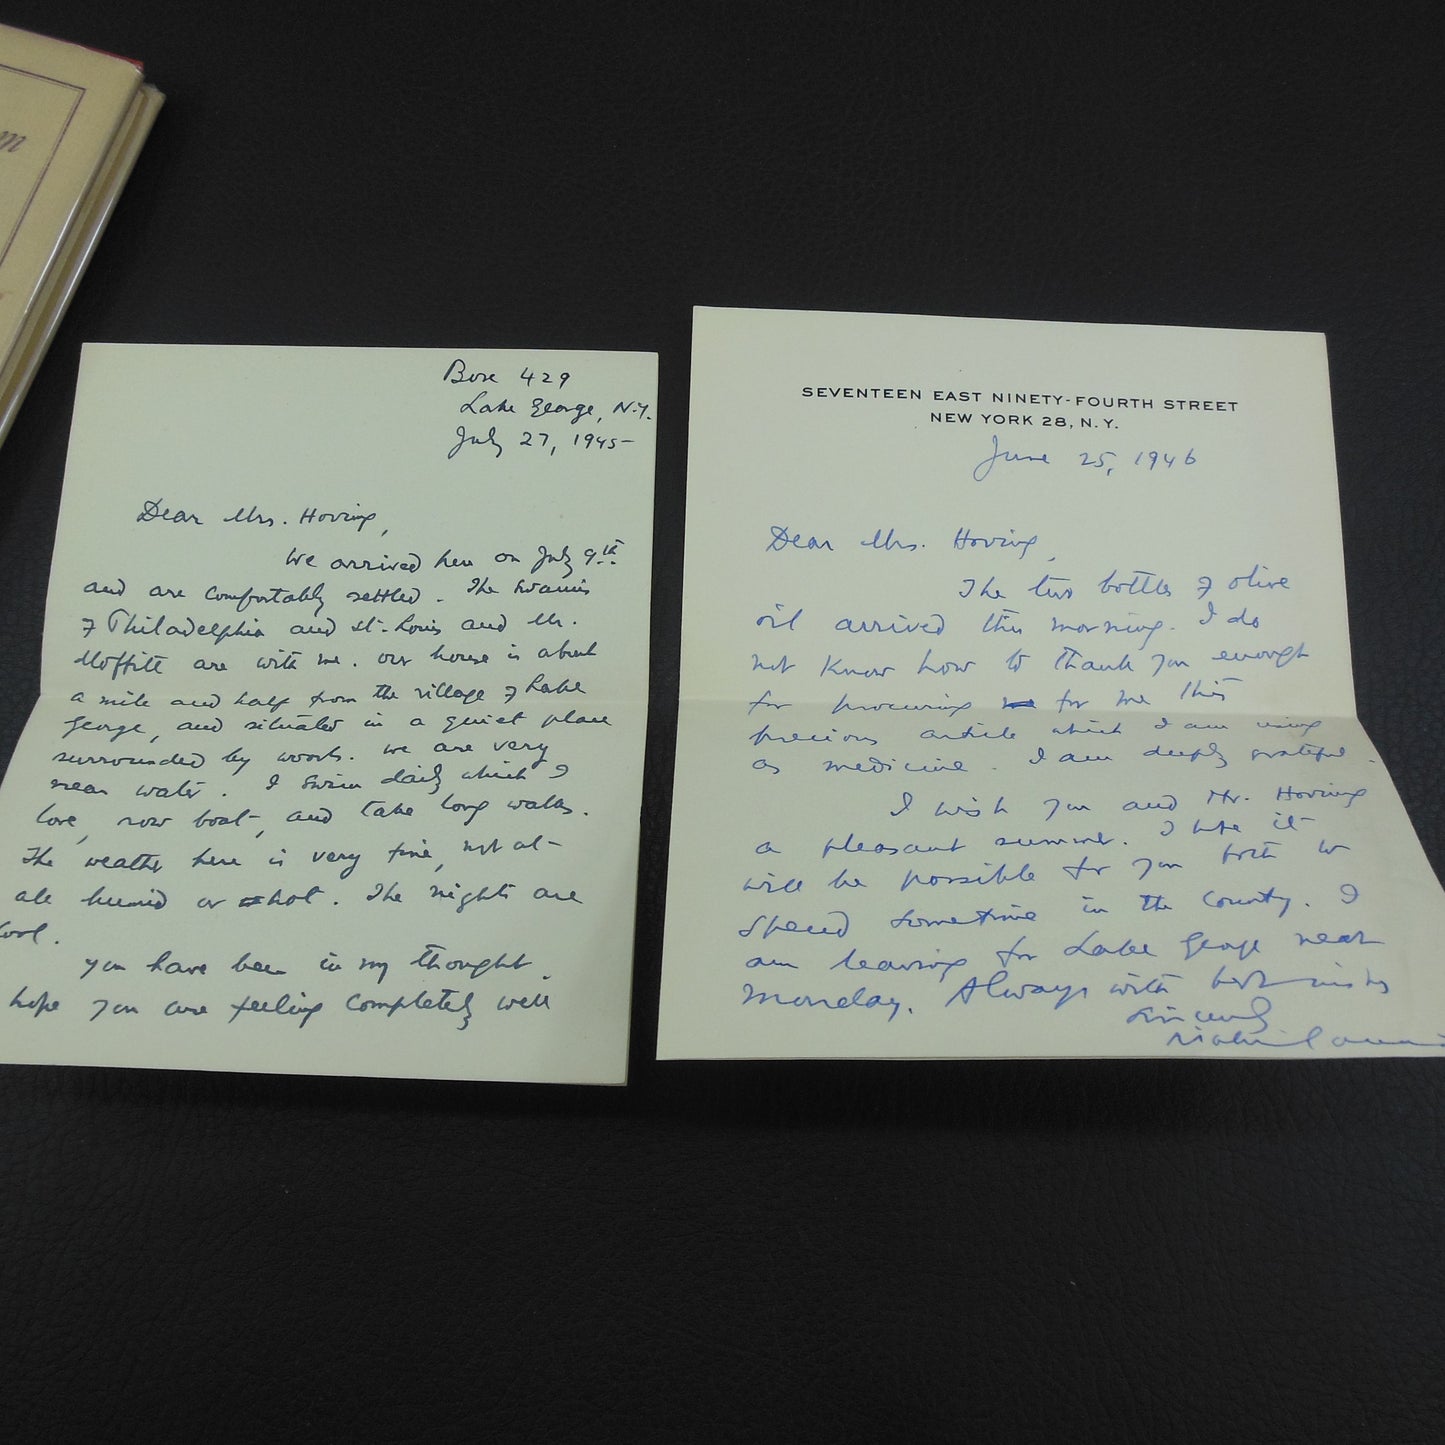 m
Box 429
Lake George, N.Y.
July 27, 1945
Dear Mrs. Hoving,
We arrived here on July 9th
and are comfortably settled. The Swamis
of Philadelphia and St. Louis and Mr.
Moffitt are with me. Our house is about
a mile and half from the village of Lake
George, and situated in a quiet place
surrounded by woods. We are very
near water. I swim daily which I
love, row boat, and take long walks.
The weather here is very fine, not at
all humid or hot. The nights are
cool.
You have been in my thought.
hope you are feeling completely well
SEVENTEEN EAST NINETY-FOURTH STREET
NEW YORK 28, N.Y.
June 25, 1946
Dear Mrs. Hoving,
The two bottles of olive
oil arrived this morning. I do
not know how to thank you enough
for procuring for me this
precious article which I am using
as medicine. I am deeply grateful.
I wish you and Mr. Hoving
a pleasant summer. I hope it
will be possible for you both to
spend sometime in the country. I
am leaving for Lake George next
Monday. Always with best wishes
Sincerely